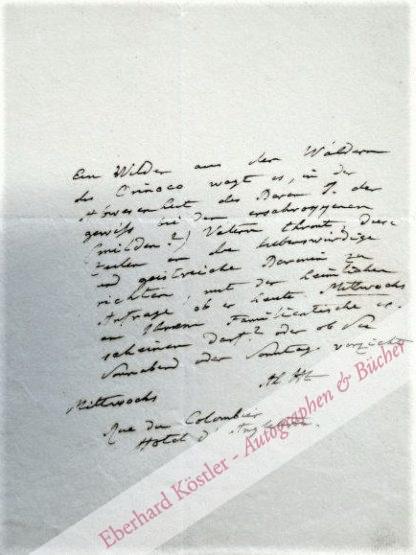 Ein Wilder aus den Wäldern
des Orinoco wagt es, in der
Abwesenheit des Baron J. der
gewiß bei dem
(milden?) Vatern thront, diese
Zeilen an die liebenswürdige
und geistreiche Baronin zu
richten, mit der
Anfrage ob er heute Mittwochs
an Ihrem Familientische er-
scheinen darf? oder ob Sie
Sonnabend oder Sonntag
Mittwochs
Rue du Colombier
Hotel d'
Eberhard Köstler - Autographen & Bücher